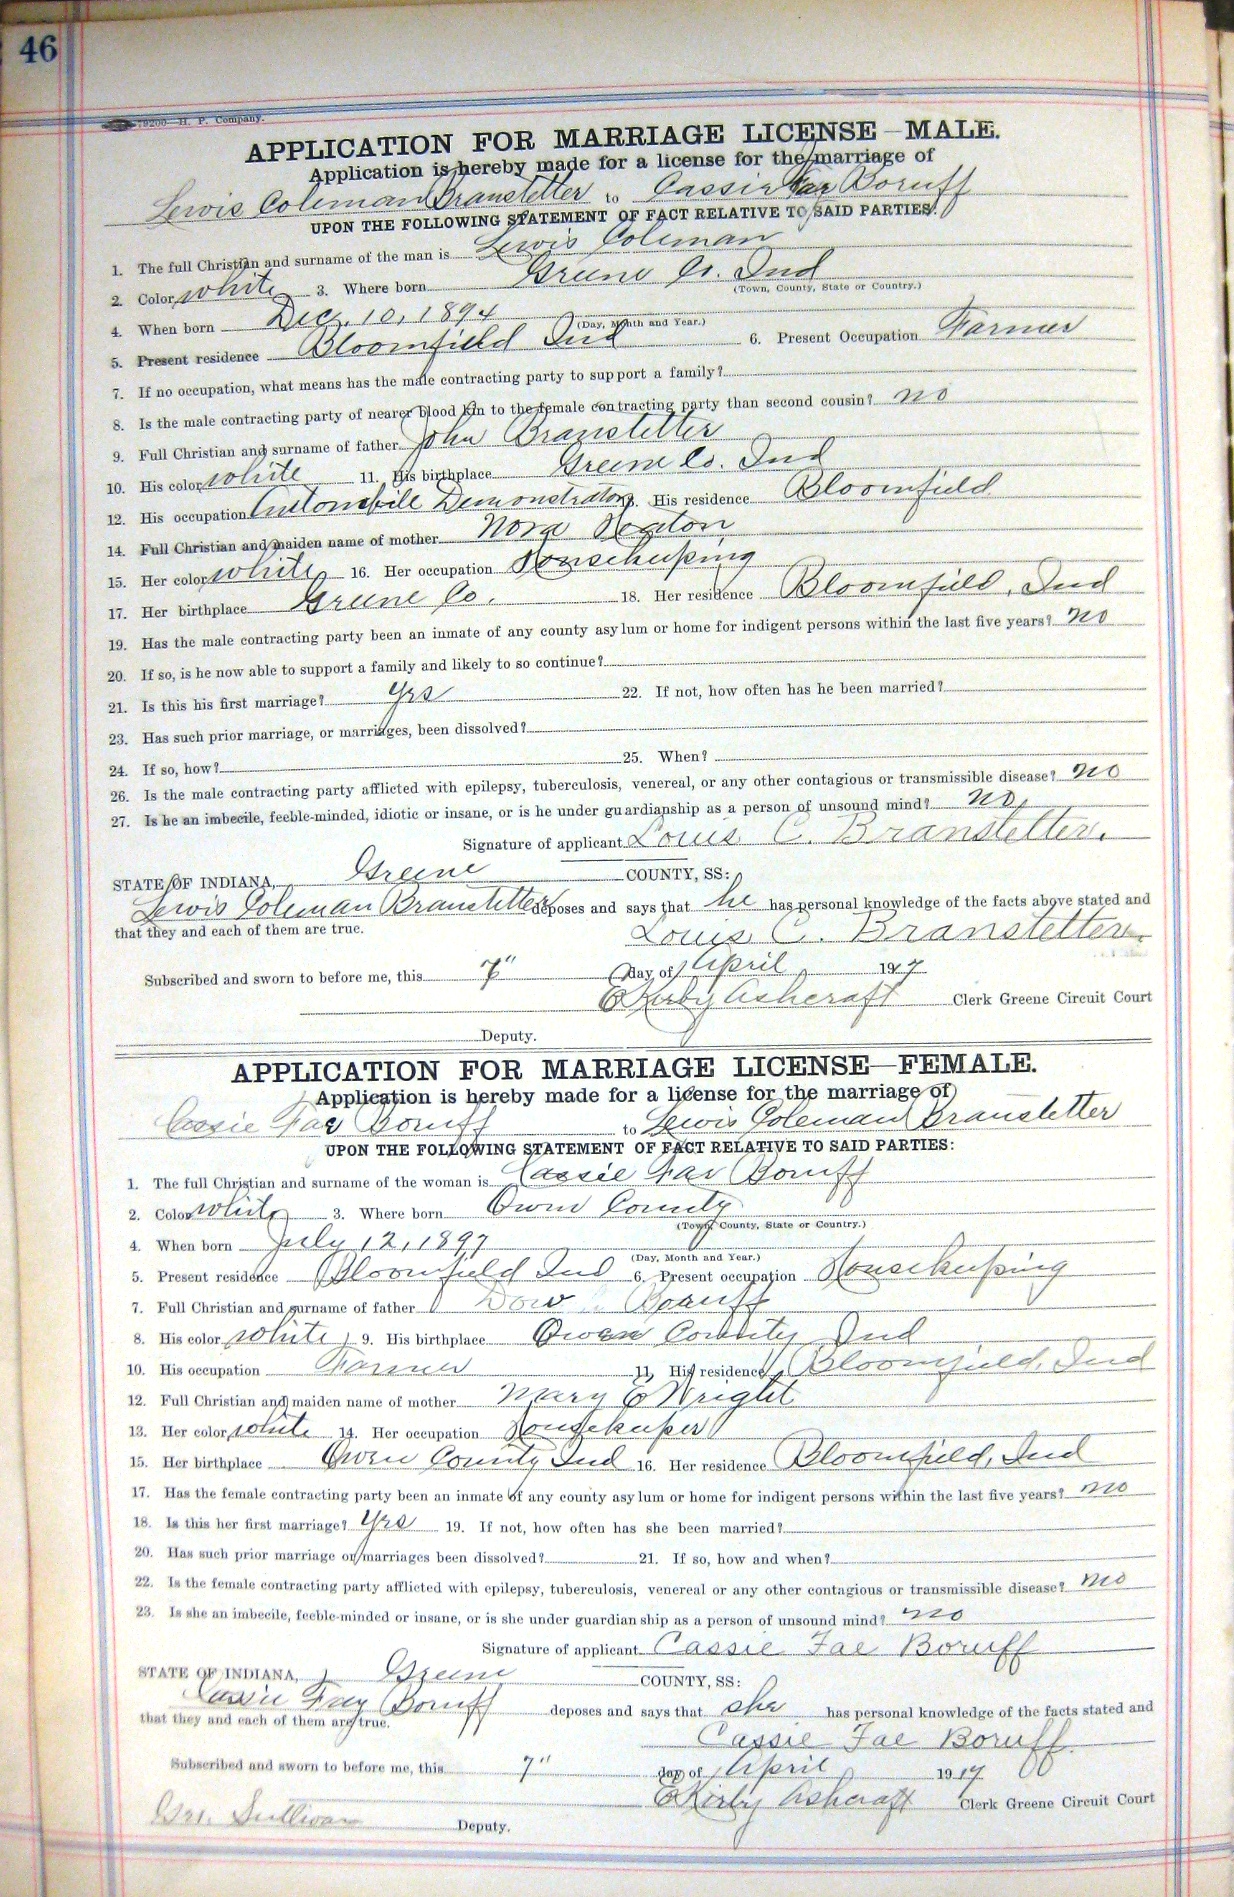 46
79200—H. P. Company.
APPLICATION FOR MARRIAGE LICENSE—MALE.
Application is hereby made for a license for the marriage of
Lewis Coleman Branstetter to Cassie Fae Boruff
UPON THE FOLLOWING STATEMENT OF FACT RELATIVE TO SAID PARTIES:
1. The full Christian and surname of the man is Lewis Coleman
2. Color white 3. Where born Greene Co. Ind
(Town, County, State or Country.)
4. When born Dec. 10, 1894
(Day, Month and Year.)
5. Present residence Bloomfield Ind 6. Present Occupation Farmer
7. If no occupation, what means has the male contracting party to support a family?
8. Is the male contracting party of nearer blood kin to the female contracting party than second cousin? no
9. Full Christian and surname of father John Branstetter
10. His color white 11. His birthplace Greene Co. Ind
12. His occupation Automobile Demonstrator 13. His residence Bloomfield
14. Full Christian and maiden name of mother Nora Heaton
15. Her color white 16. Her occupation Housekeeping
17. Her birthplace Greene Co. 18. Her residence Bloomfield, Ind
19. Has the male contracting party been an inmate of any county asylum or home for indigent persons within the last five years? no
20. If so, is he now able to support a family and likely to so continue?
21. Is this his first marriage? yes 22. If not, how often has he been married?
23. Has such prior marriage, or marriages, been dissolved?
24. If so, how? 25. When?
26. Is the male contracting party afflicted with epilepsy, tuberculosis, venereal, or any other contagious or transmissible disease? no
27. Is he an imbecile, feeble-minded, idiotic or insane, or is he under guardianship as a person of unsound mind? no
Signature of applicant Louis C. Branstetter.
STATE OF INDIANA, Greene COUNTY, SS:
Lewis Coleman Branstetter deposes and says that he has personal knowledge of the facts above stated and
that they and each of them are true.
Louis C. Branstetter.
Subscribed and sworn to before me, this 7" day of April 1917
E Kirby Ashcraft Clerk Greene Circuit Court
Deputy.
APPLICATION FOR MARRIAGE LICENSE—FEMALE.
Application is hereby made for a license for the marriage of
Cassie Fae Boruff to Lewis Coleman Branstetter
UPON THE FOLLOWING STATEMENT OF FACT RELATIVE TO SAID PARTIES:
1. The full Christian and surname of the woman is Cassie Fae Boruff
2. Color white 3. Where born Owen County
(Town, County, State or Country.)
4. When born July 12, 1897
(Day, Month and Year.)
5. Present residence Bloomfield Ind 6. Present occupation Housekeeping
7. Full Christian and surname of father Dow Boruff
8. His color white 9. His birthplace Owen County Ind
10. His occupation Farmer 11. His residence Bloomfield, Ind
12. Full Christian and maiden name of mother Mary E Wright
13. Her color white 14. Her occupation Housekeeper
15. Her birthplace Owen County Ind 16. Her residence Bloomfield, Ind
17. Has the female contracting party been an inmate of any county asylum or home for indigent persons within the last five years? no
18. Is this her first marriage? yes 19. If not, how often has she been married?
20. Has such prior marriage or marriages been dissolved? 21. If so, how and when?
22. Is the female contracting party afflicted with epilepsy, tuberculosis, venereal or any other contagious or transmissible disease? no
23. Is she an imbecile, feeble-minded or insane, or is she under guardianship as a person of unsound mind? no
Signature of applicant Cassie Fae Boruff
STATE OF INDIANA, Greene COUNTY, SS:
Cassie Fay Boruff deposes and says that she has personal knowledge of the facts stated and
that they and each of them are true.
Cassie Fae Boruff.
Subscribed and sworn to before me, this 7" day of April 1917
E Kirby Ashcraft Clerk Greene Circuit Court
Sullivan Deputy.